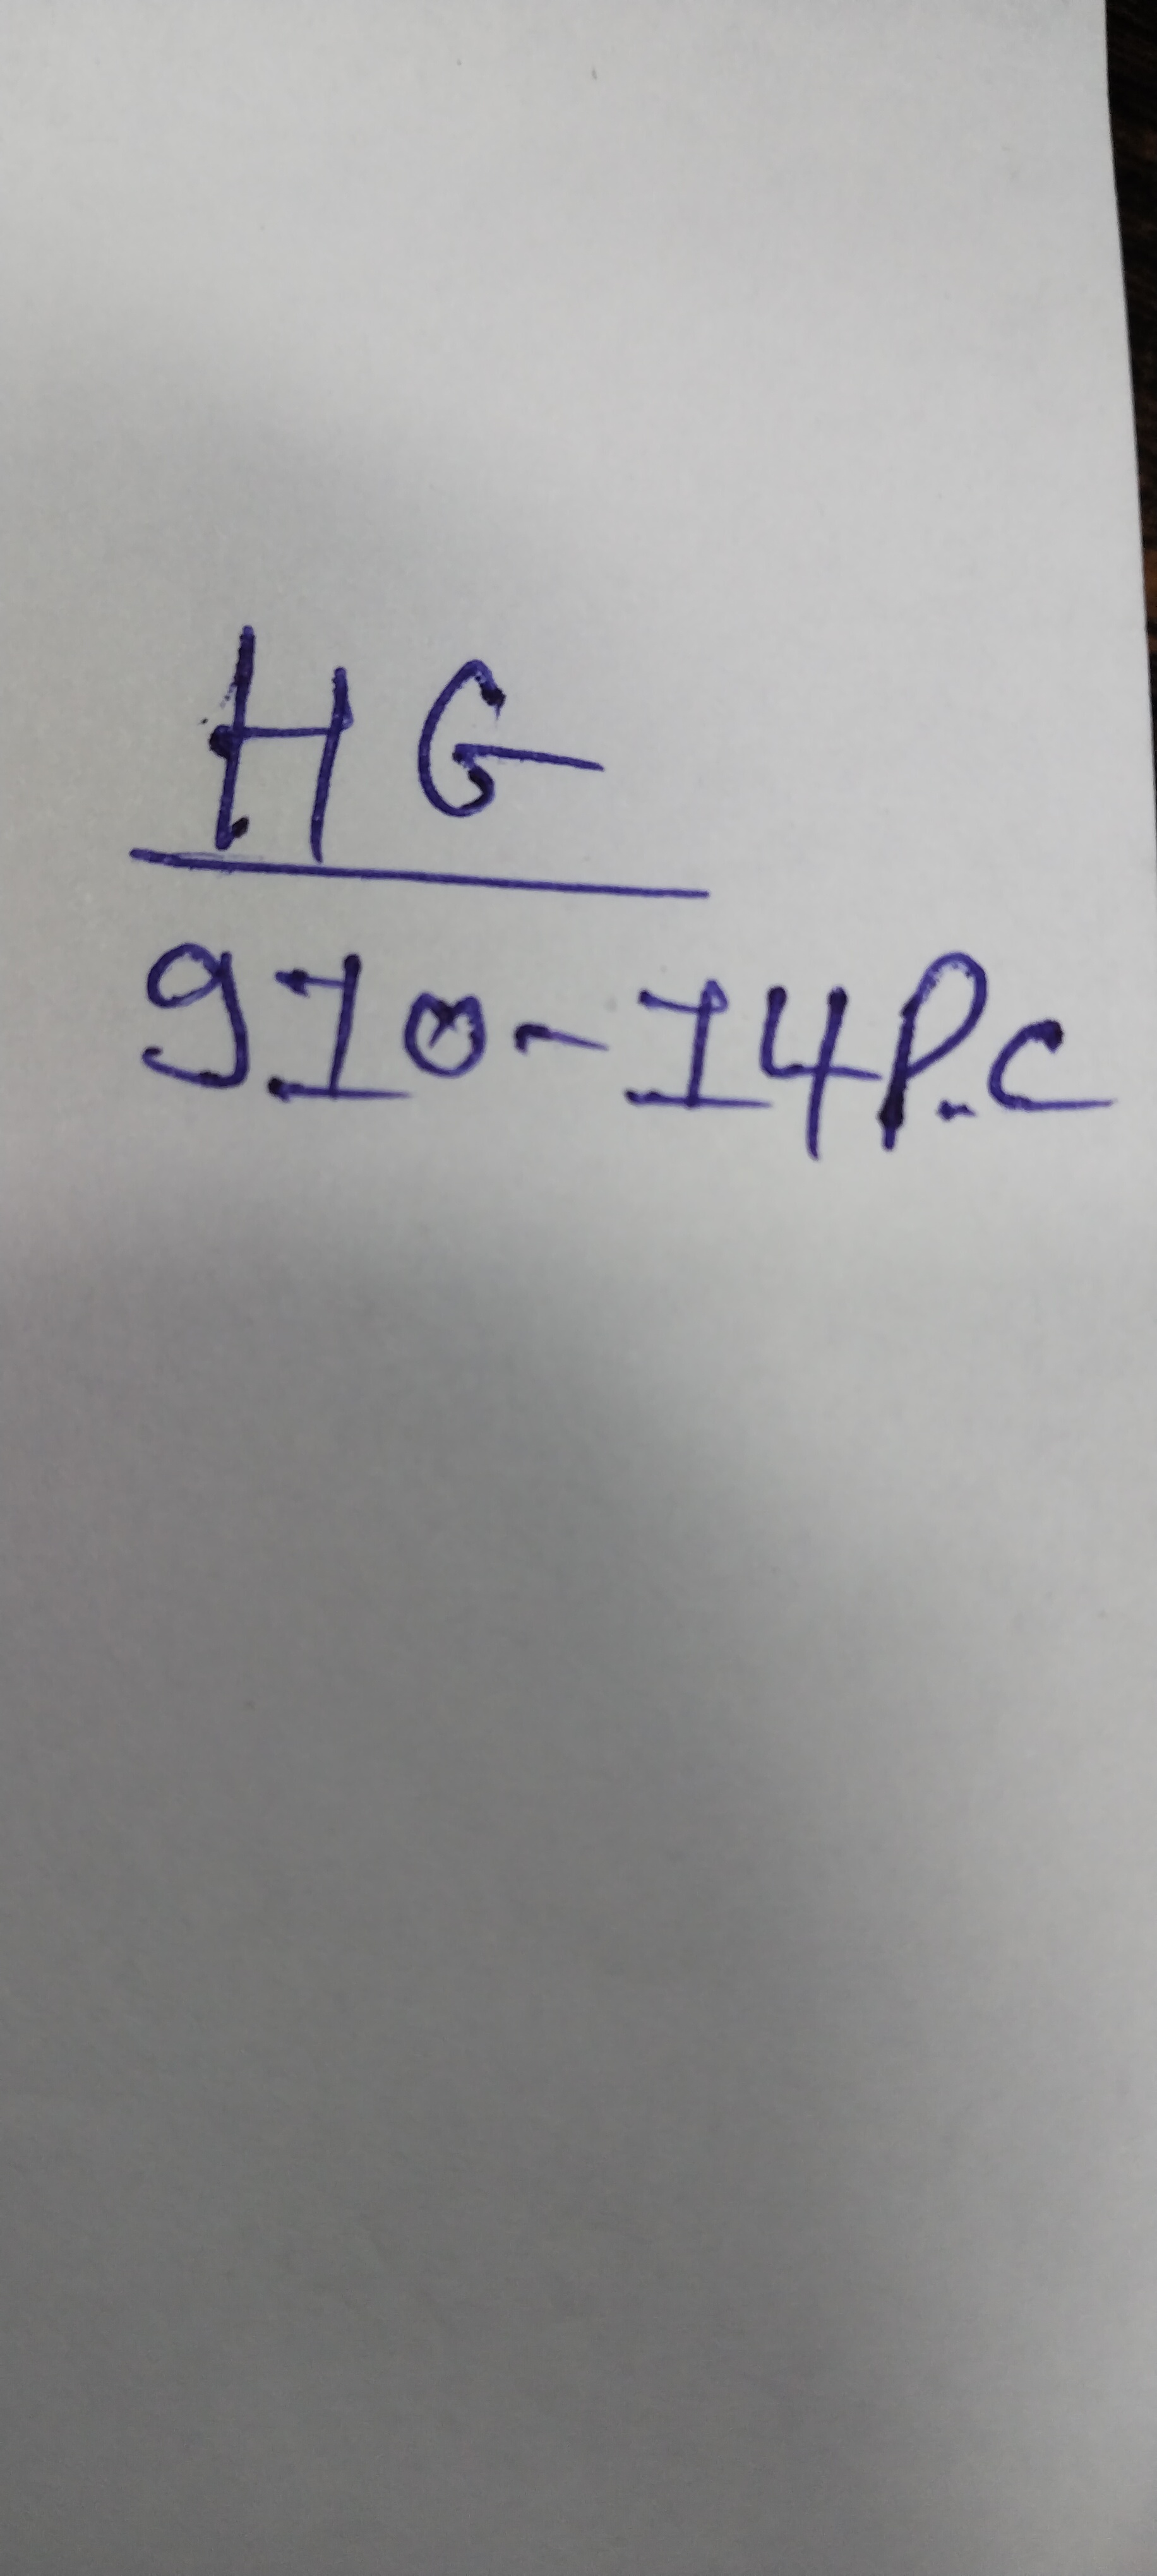 HG
910-14P.C